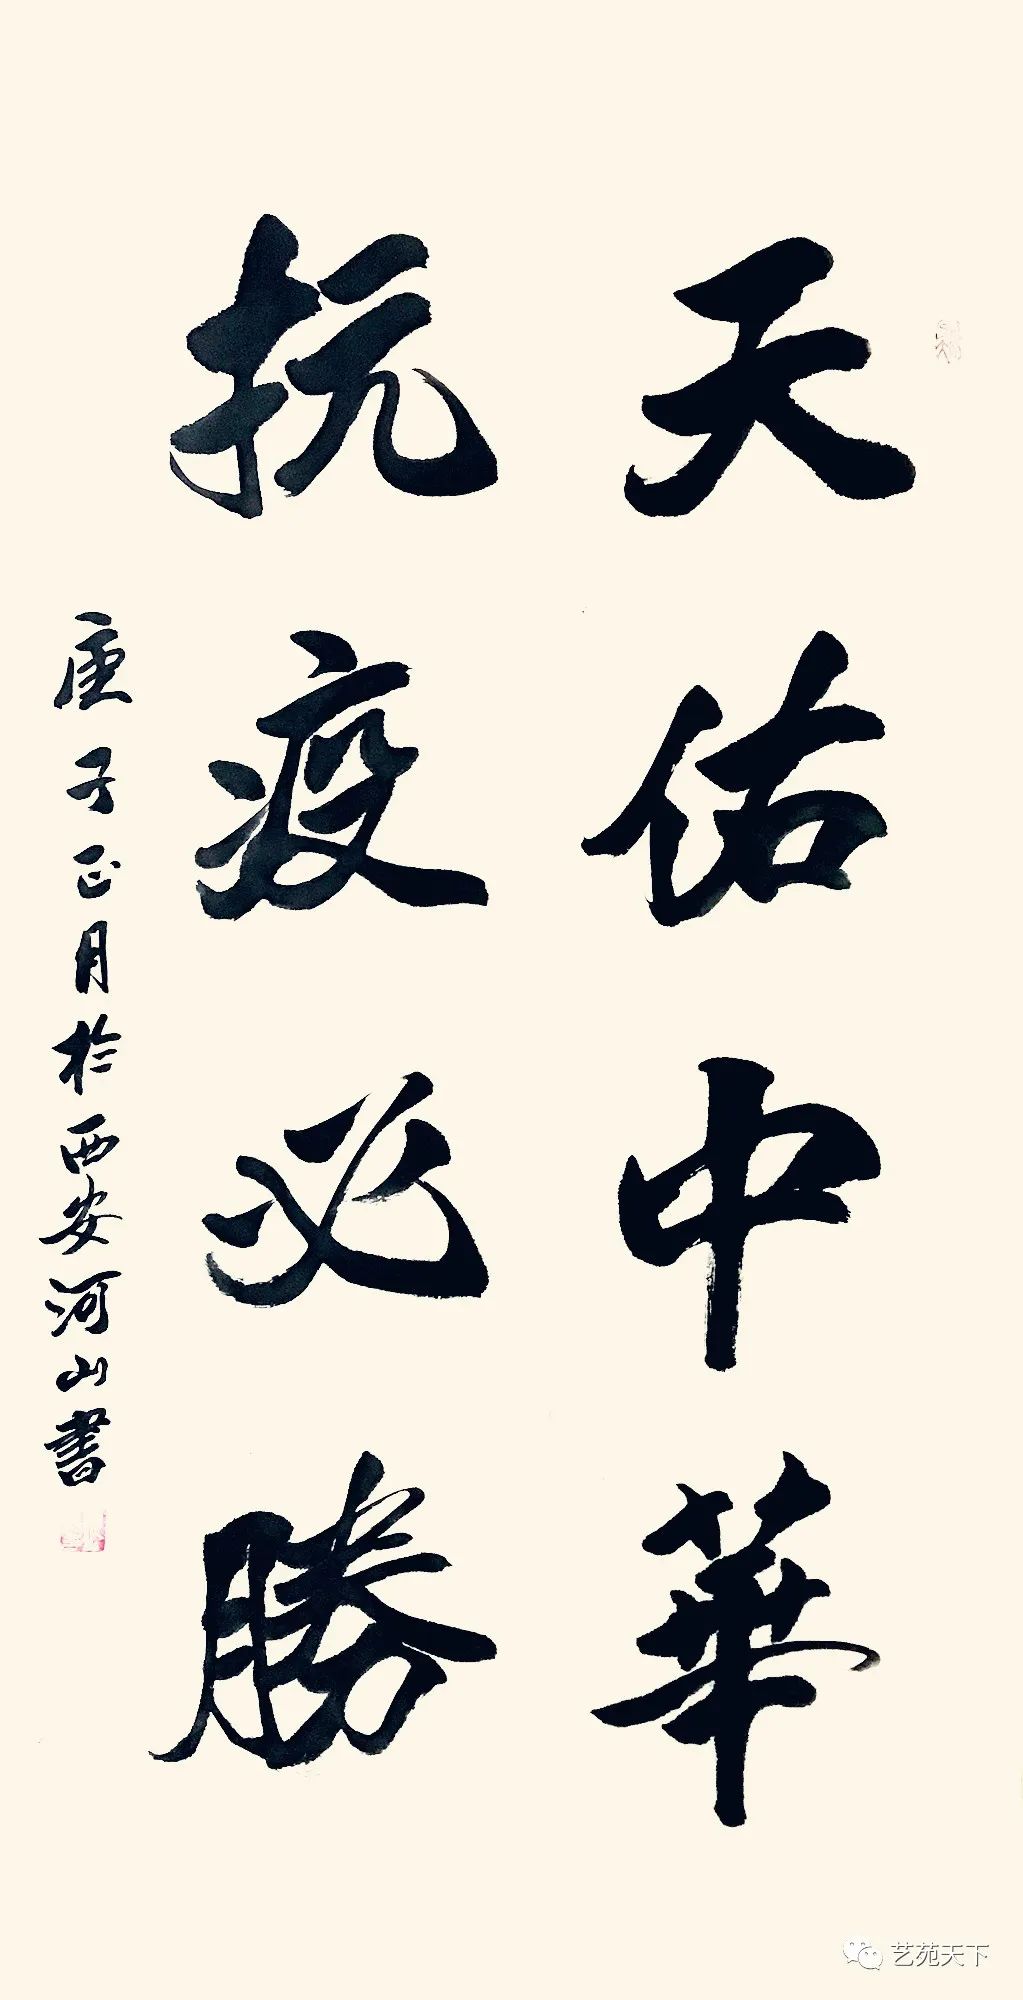 天佑中華
抗疫必勝
庚子正月於西安河山書
艺苑天下